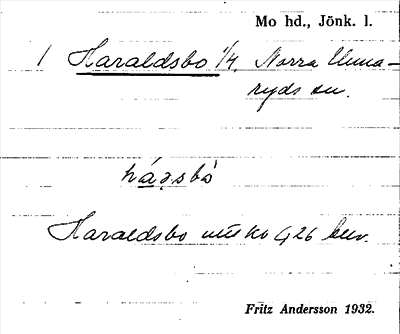 Mo hd., Jönk. l.
1 Haraldsbo 1/4 Norra Unna-
ryds sn.
háṛsbo
Haraldsbo
Fritz Andersson 1932.